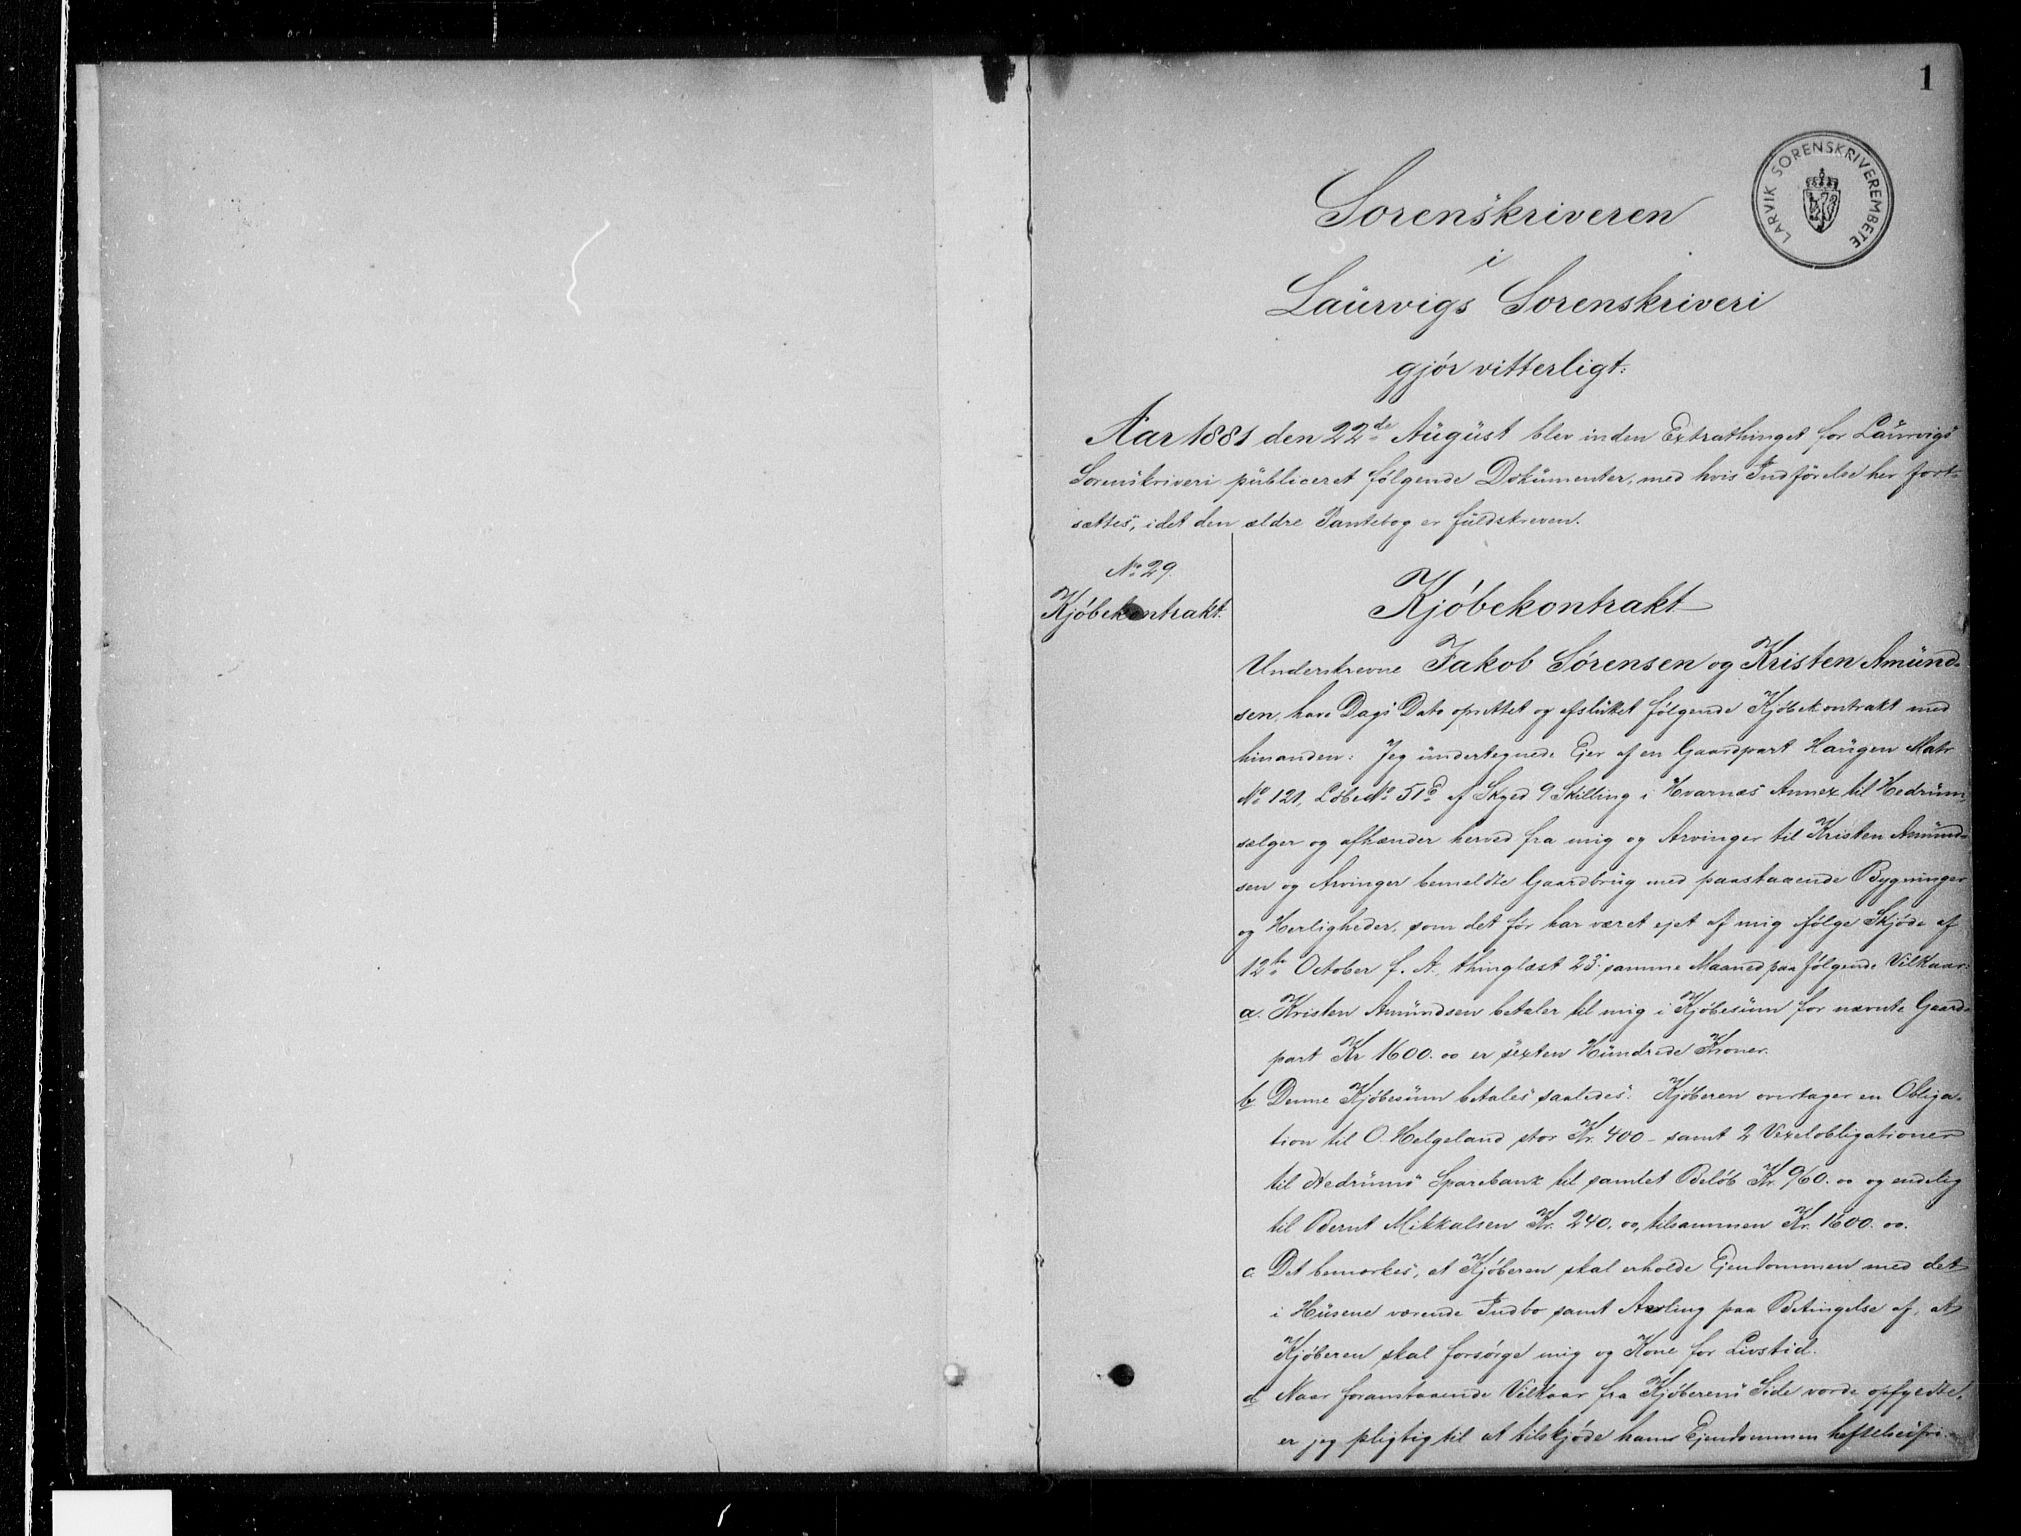 1
LARVIK SORENSKRIVEREMBETE
Sorenskriveren
i
Laurvigs Sorenskriveri
gjør vitterligt:
Aar 1881 den 22de August blev inden Extrathinget for Laurvigs
Sorenskriveri publiceret følgende Dokumenter, med hvis Indførelse her fort-
sættes, idet den ældre Pantebog er fuldskreven.
No 29.
Kjøbekontrakt.
Kjøbekontrakt
Underskrevne Jakob Sørensen og Kristen Amund-
sen, have Dags Dato oprettet og afsluttet følgende Kjøbekontrakt med
hinanden: Jeg undertegnede Ejer af en Gaardpart Haugen Matr
No 121, Løbe No 51 af Skyld 9 Skilling i Hvarnæs Annex til Hedrum,
sælger og afhænder herved fra mig og Arvinger til Kristen Amund-
sen og Arvinger bemeldte Gaardbrug med paastaaende Bygninger
og Herligheder, som det før har været ejet af mig ifølge Skjøde af
12te October f. A. thinglæst 23. samme Maaned paa følgende Vilkaar:
a. Kristen Amundsen betaler til mig i Kjøbesum for nævnte Gaard-
part Kr 1600.00 er sexten Hundrede Kroner.
b Denne Kjøbesum betales saaledes: Kjøberen overtager en Obliga-
tion til O. Helgeland stor Kr. 400 - samt 2 Vexelobligationer
til Hedrums Sparebank til samlet Beløb Kr. 960.00 og endelig
til Bernt Mikkalsen Kr. 240.00, tilsammen Kr. 1600.00.
c. Det bemærkes, at Kjøberen skal erholde Ejendommen med det
i Husene værende Indbo samt Avling paa Betingelse af, at
Kjøberen skal forsørge mig og Kone for Livstid.
d Naar foranstaaende Vilkaar fra Kjøberens Side vorde opfyldte,
er jeg pligtig til at tilskjøde ham Ejendommen heftelsesfri